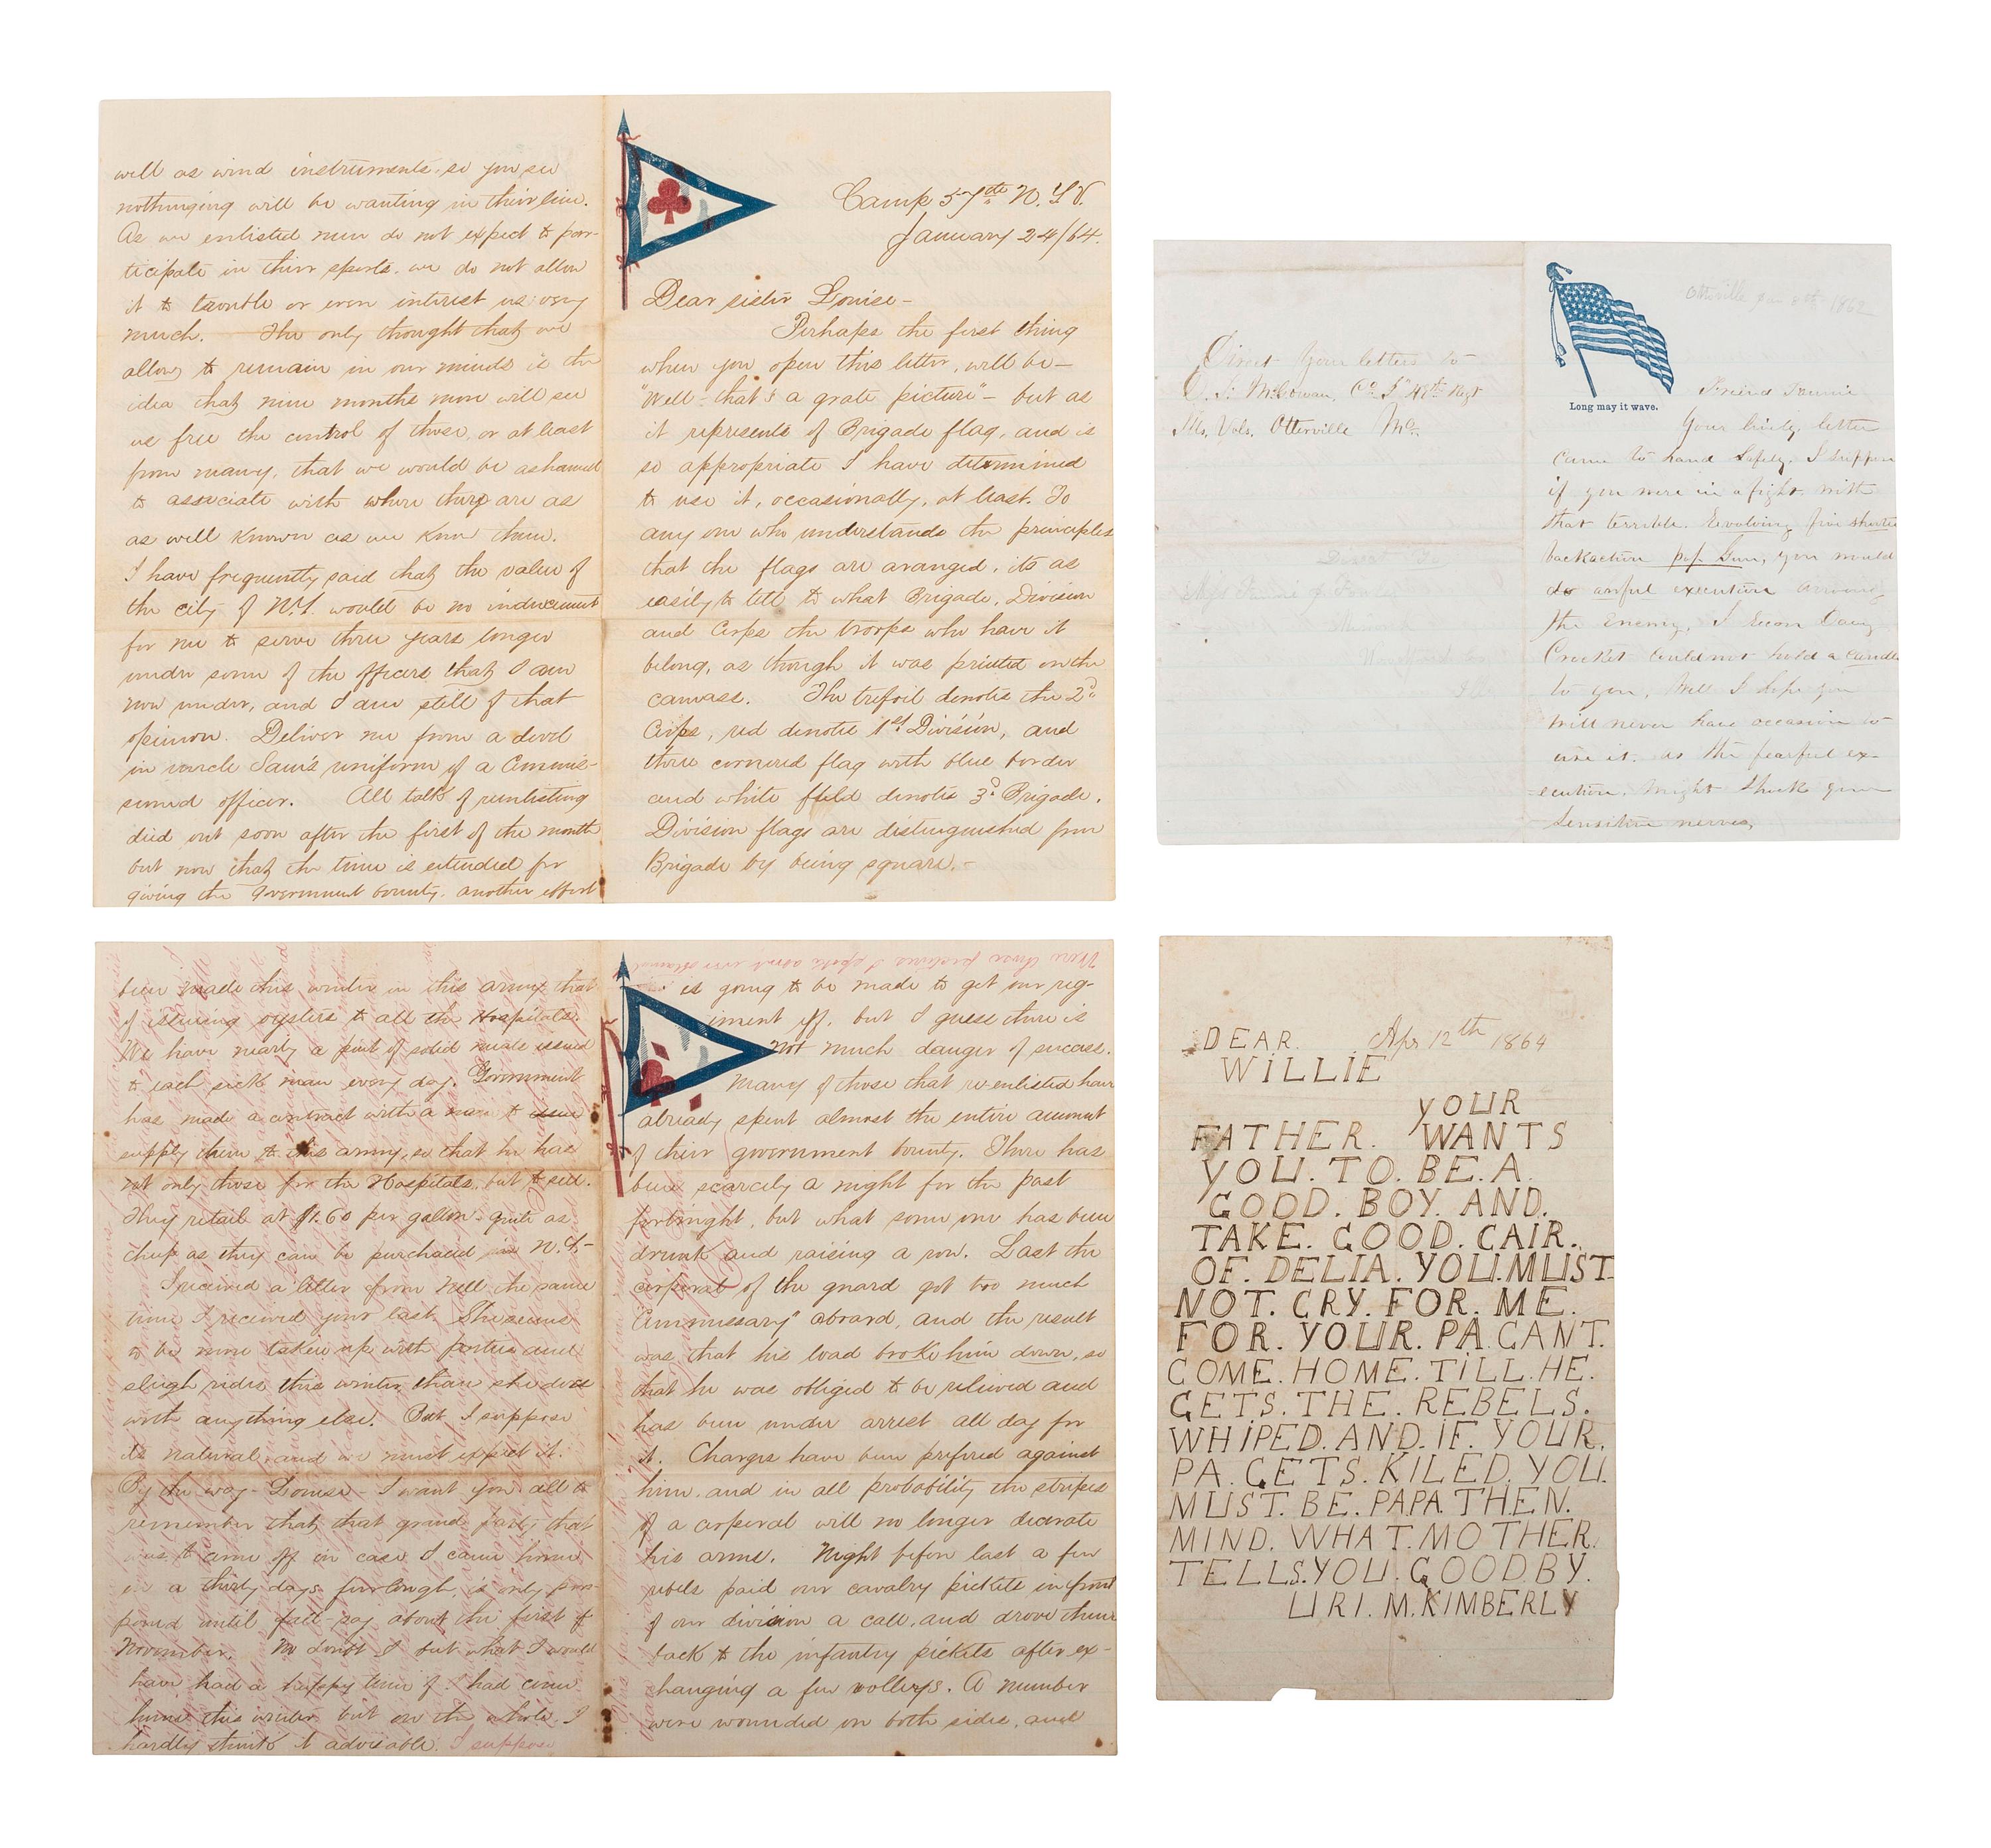 Camp 57th N.Y.V.
January 24/64.
Dear sister Louise-
Perhaps the first thing
when you open this letter, will be-
"Well- that's a grate picture"- but as
it represents of Brigade flag, and is
so appropriate I have determined
to use it, occasionally, at least. To
any one who understands the principles
that the flags are aranged, its as
easily to tell to what Brigade, Division
and Corps the troops who have it
belong, as though it was printed on the
canvass. The trefoil denotes the 2d
Corps, red denotes 1st Division, and
three cornered flag with blue border
and white field denotes 3d Brigade.
Division flags are distinguished from
Brigade by being square.-
will as wind instruments. so you see
nothinging will be wanting in their line.
As we enlisted men do not expect to par-
ticipate in their sports. we do not allow
it to trouble or even interest us very
much. The only thought that we
allow to remain in our minds is the
idea that nine months more will see
us free the control of those, or at least
from many, that we would be ashamed
to associate with where they are as
as well known as we know them.
I have frequently said that the value of
the city of N.Y. would be no inducement
for me to serve three years longer
under some of the officers that I am
now under, and I am still of that
opinion. Deliver me from a devil
in uncle Sam's uniform of a Commis-
sioned officer. All talk of reenlisting
died out soon after the first of the month
but now that the time is extended for
giving the Government bounty. another effort
is going to be made to get our reg-
iment off, but I guess there is
not much danger of success.
Many of those that re-enlisted have
already spent almost the entire amount
of their government bounty. There has
been scarcely a night for the past
fortnight, but what some one has been
drunk and raising a row. Last the
corporal of the guard got too much
Commissary" aboard, and the result
was that his load broke him down, so
that he was obliged to be relieved and
has been under arrest all day for
it. Charges have been prefered against
him. and in all probability the stripes
of a corporal will no longer decorate
his arms. Night before last a few
rebels paid our cavalry pickets in front
of our division a call, and drove them
back to the infantry pickets after ex-
changing a few volleys. A number
were wounded on both sides, and
been made this winter in this army that
of issueing oysters to all the Hospitals.
We have nearly a pint of solid meats issued
to each sick man every day. Government
has made a contract with a man to issue
supply them to this army, so that he has
not only those for the Hospitals, but to sell.
They retail at $1.60 per gallon- quite as
cheap as they can be purchased in N.Y.-
I received a letter from Nell the same
time I received your last. She seems
to be more taken up with parties and
sleigh rides this winter than she does
with anything else. But I suppose
its natural and we must expect it.
By the way- Louise- I want you all to
remember that that grand party that
was to come off in case I came home
on a thirty days furlough, is only post-
poned until fall- say about the first of
November. No doubt I but what I would
have had a happy time if I had come
home this winter but on the whole I
hardly think it adviseable. I suppose
Direct Your letters to
McGowan, Co 48th Regt
Ills, Vols. Otterville Mo.
Otterville Jan 8th 1862
Long may it wave.
Friend Fannie
Your lively letter
came to hand Safely. I suppose
if you were in a fight. with
that terrible. Revolving five shooter
backaction pop Gun, you would
do awful execution among
the enemy, I recon Davy
Crocket Could not hold a Candle
to you, Well I hope you
will never have occasion to
use it. as the fearful ex-
ecution. Might Shock your
Sensitive nerves,
DEAR. Apr 12th 1864
WILLIE
YOUR
FATHER. WANTS
YOU. TO. BE. A.
GOOD. BOY. AND.
TAKE. GOOD. CAIR.
OF. DELIA. YOU. MUST.
NOT. CRY. FOR. ME.
FOR. YOUR. PA. CANT.
COME. HOME. TILL. HE.
GETS. THE. REBELS.
WHIPED. AND. IF. YOUR.
PA. GETS. KILED. YOU.
MUST. BE. PAPA. THEN.
MIND. WHAT. MOTHER.
TELLS. YOU. GOODBY.
URI. M. KIMBERLY